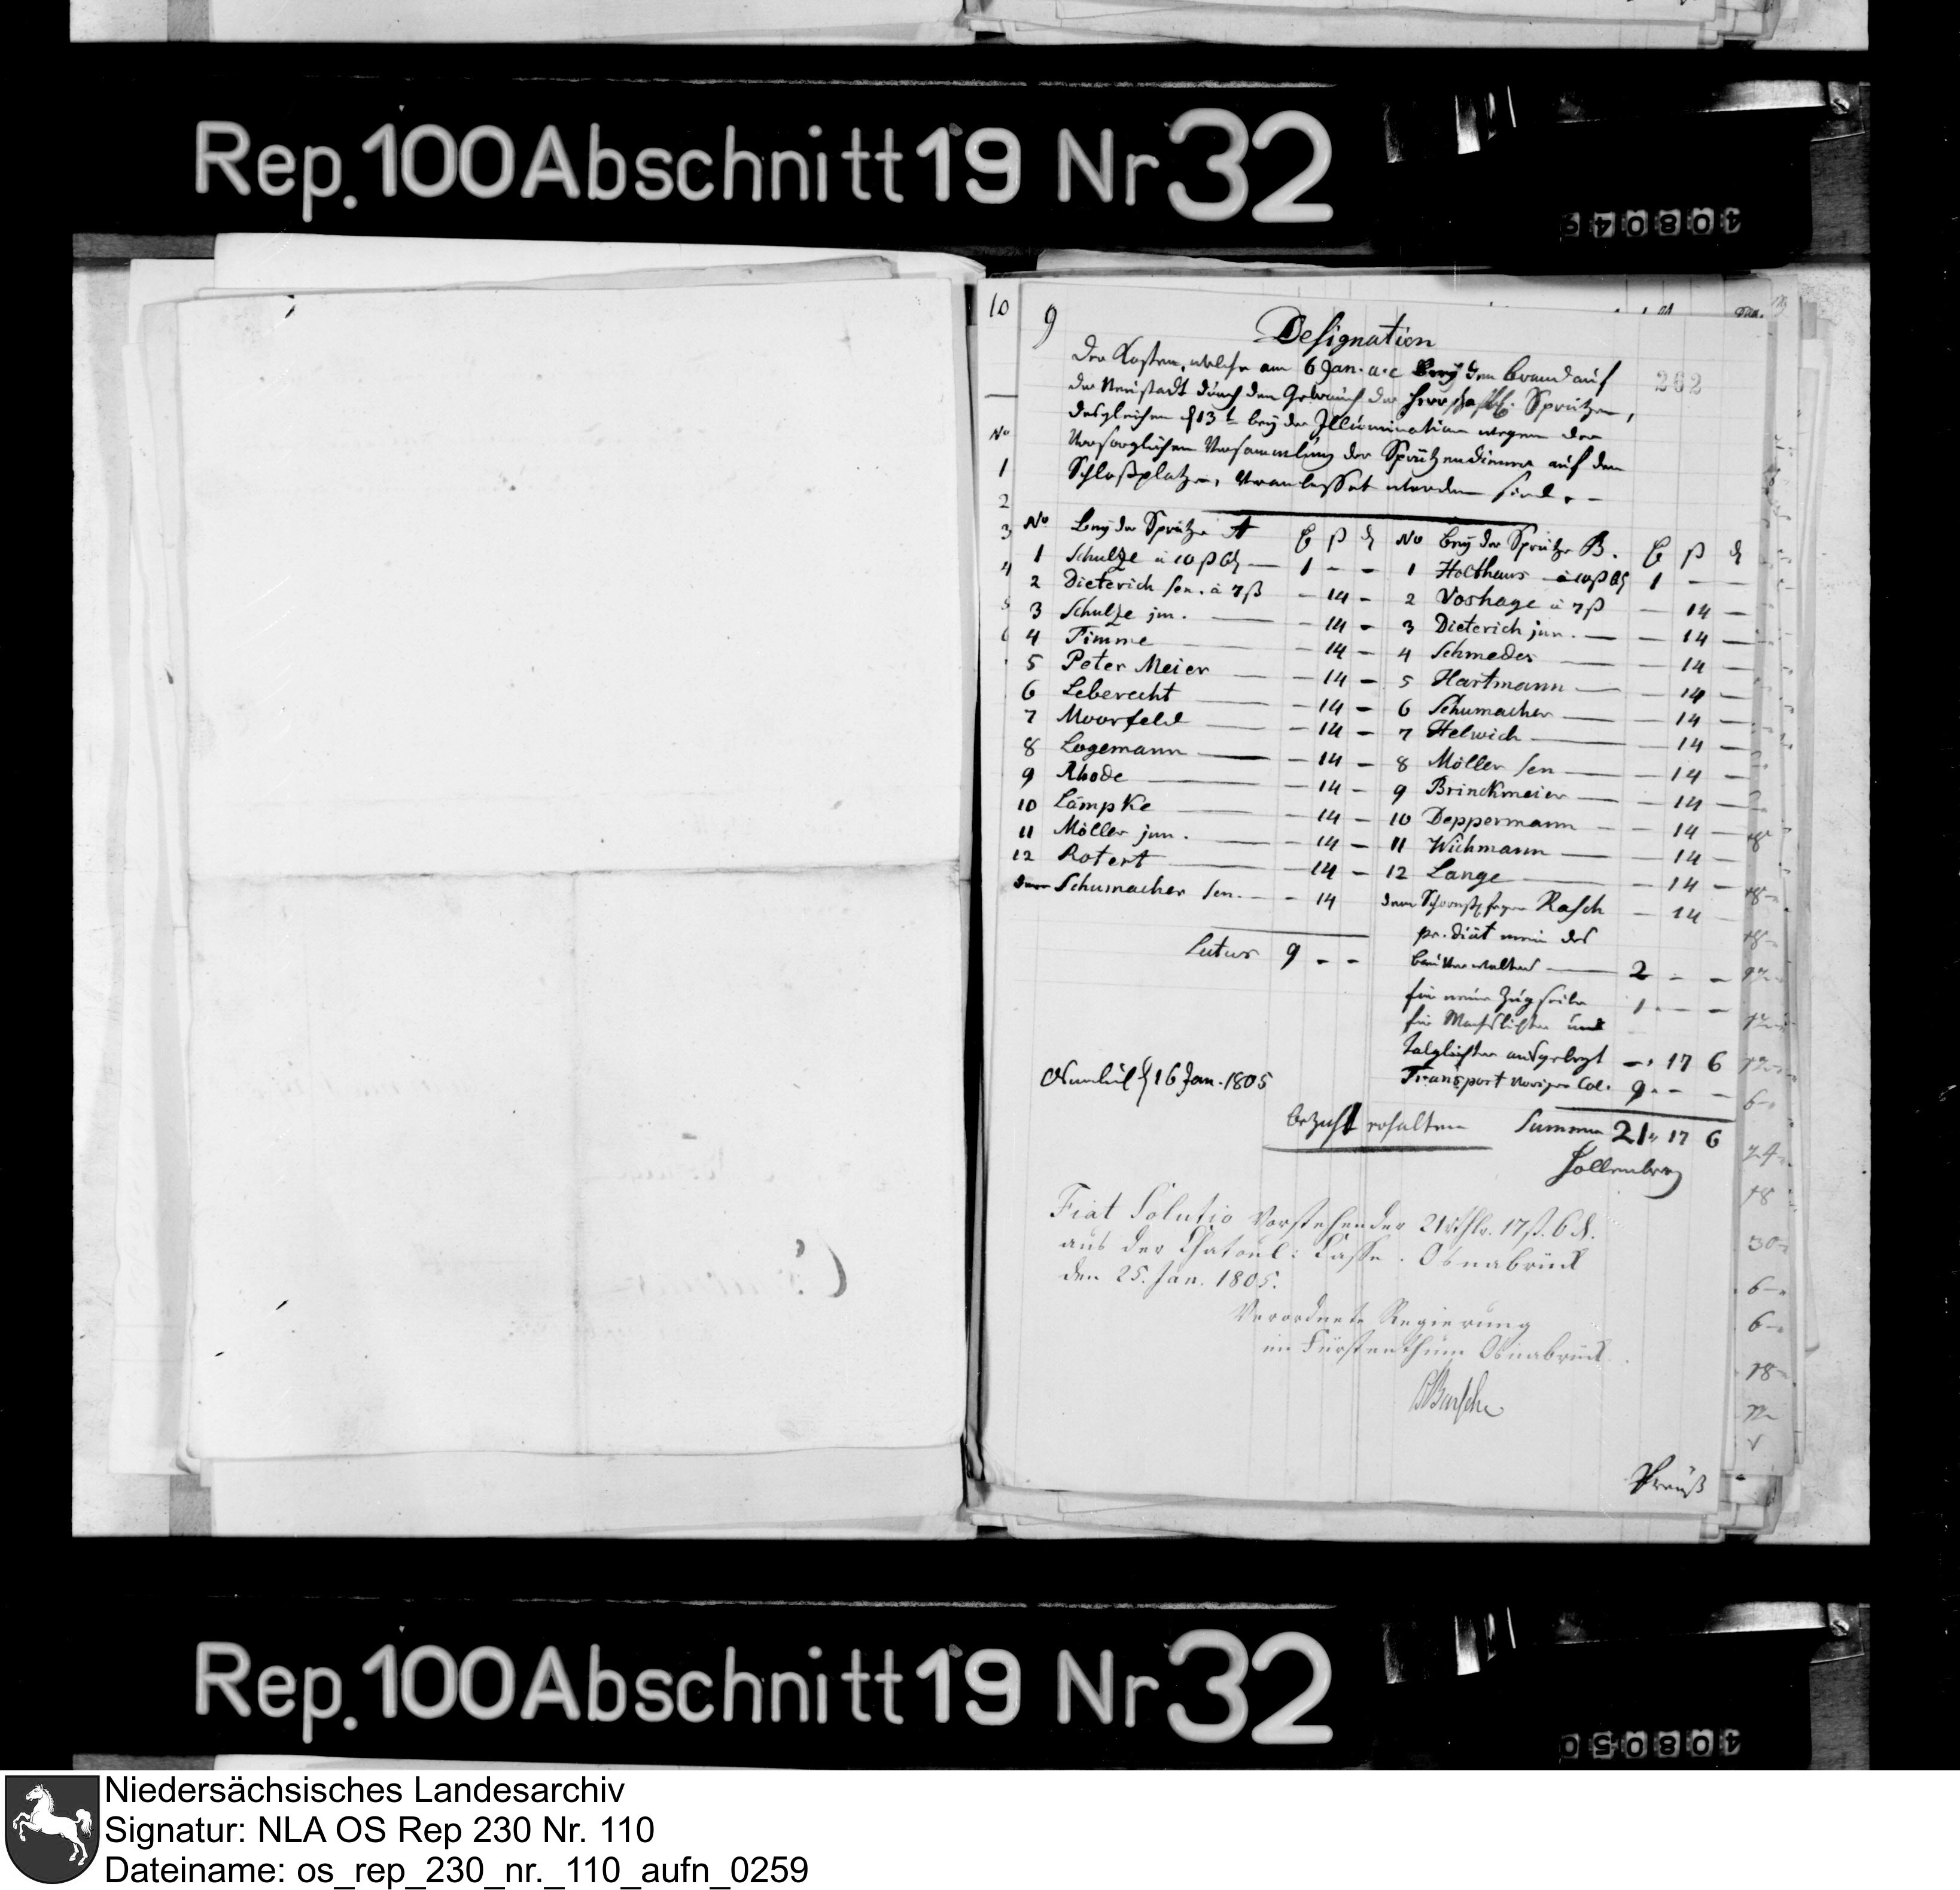 Rep. 100 Abschnitt 19 Nr 32
40804
10
9
262
Designation
der Kosten, welche am 6 Jan. a. c. bey dem Brand auf
der Neustadt durch den Gebrauch der herrschaftl. Sprützen,
desgleichen d 13t bey der Illumination wegen der
Vorsorglichen Versammlung der Sprützendiener auf dem
Schloßplatze, veranlasset worden sind. -
No bey der Sprütze A ß ₰ No bey der Sprütze B. ß ₰
1 Schulze à 10 ß 6 ₰ — 1 - - 1 Holthaus à 10 ß 6 ₰ 1 - -
2 Dieterich sen. à 7 ß - 14 - 2 Voshage à 7 ß - 14 -
3 Schulze jun. - 14 - 3 Dieterich jun. - 14 -
4 Timme - 14 - 4 Schmedes - 14 -
5 Peter Meier - 14 - 5 Hartmann - 14 -
6 Leberecht - 14 - 6 Schumacher - 14 -
7 Moorfeld - 14 - 7 Helwich - 14 -
8 Logemann - 14 - 8 Möller sen - 14 -
9 Rhode - 14 - 9 Brinckmeier - 14 -
10 Lämpke - 14 - 10 Deppermann - 14 -
11 Möller jun. - 14 - 11 Wichmann - 14 -
12 Rotert - 14 - 12 Lange - 14 -
dem Schumacher sen. - 14 dem Schornstfeger Rasch - 14 -
Latus 9 - -
pr. diät mein des
Bauverwalters — 2 - -
für neue Zugseile 1 - -
für Wachslichter und
Talglichter ausgelegt - 17 6
Transport voriger Col. 9 - -
Osnabrück d 16 Jan. 1805
bezahlt erhalten Summa 21 " 17 6
Hollenberg
Fiat Solutio Vorstehender 21 rthlr. 17 ß. 6 ₰.
aus der Chatoul: Casse. Osnabrück
den 25. Jan. 1805.
Verordnete Regierung
im Fürstenthum Osnabrück.
Bussche
Preuß
Rep. 100 Abschnitt 19 Nr 32
408050
Niedersächsisches Landesarchiv
Signatur: NLA OS Rep 230 Nr. 110
Dateiname: os_rep_230_nr._110_aufn_0259